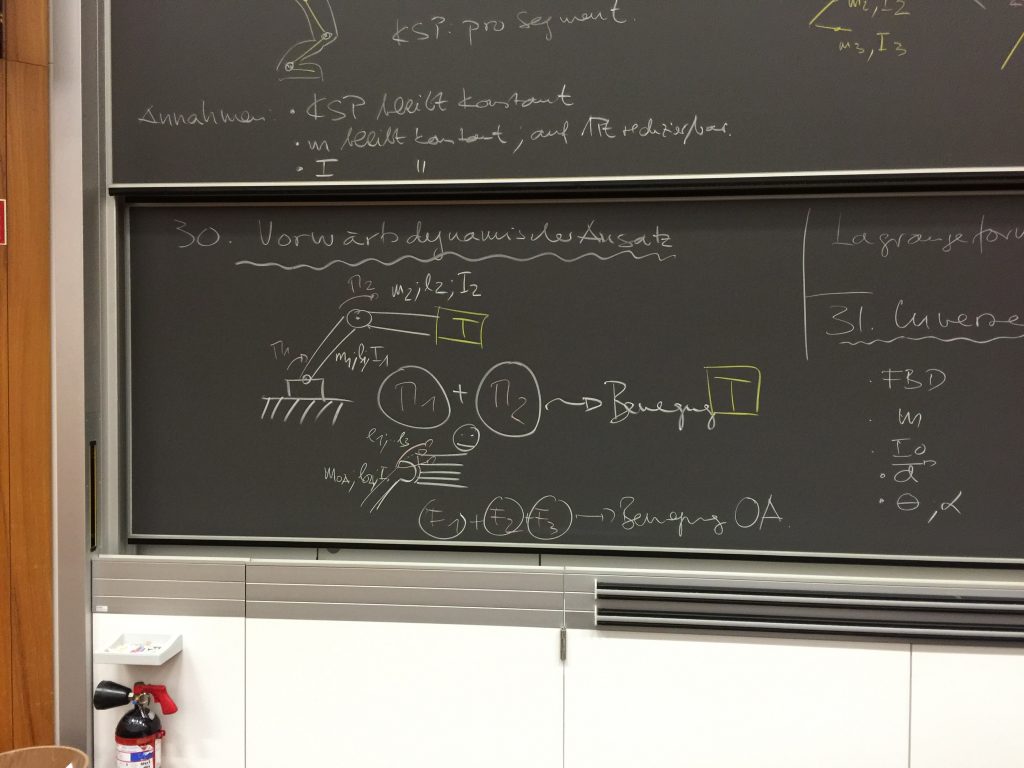 KSP: pro Segment.
m2, I2
m3, I3
Annahmen: • KSP bleibt konstant
• m bleibt konstant, auf Pkt reduzierbar.
• I "
30. Vorwärtsdynamischer Ansatz
M2 m2; l2; I2
T
M1 m1, l1, I1
M1 + M2 → Bewegung T
l1; l3
F1 + F2 + F3 → Bewegung OA.
Lagrangeform
31. Inverse
• FBD
• m
• I0
• d
• θ, α